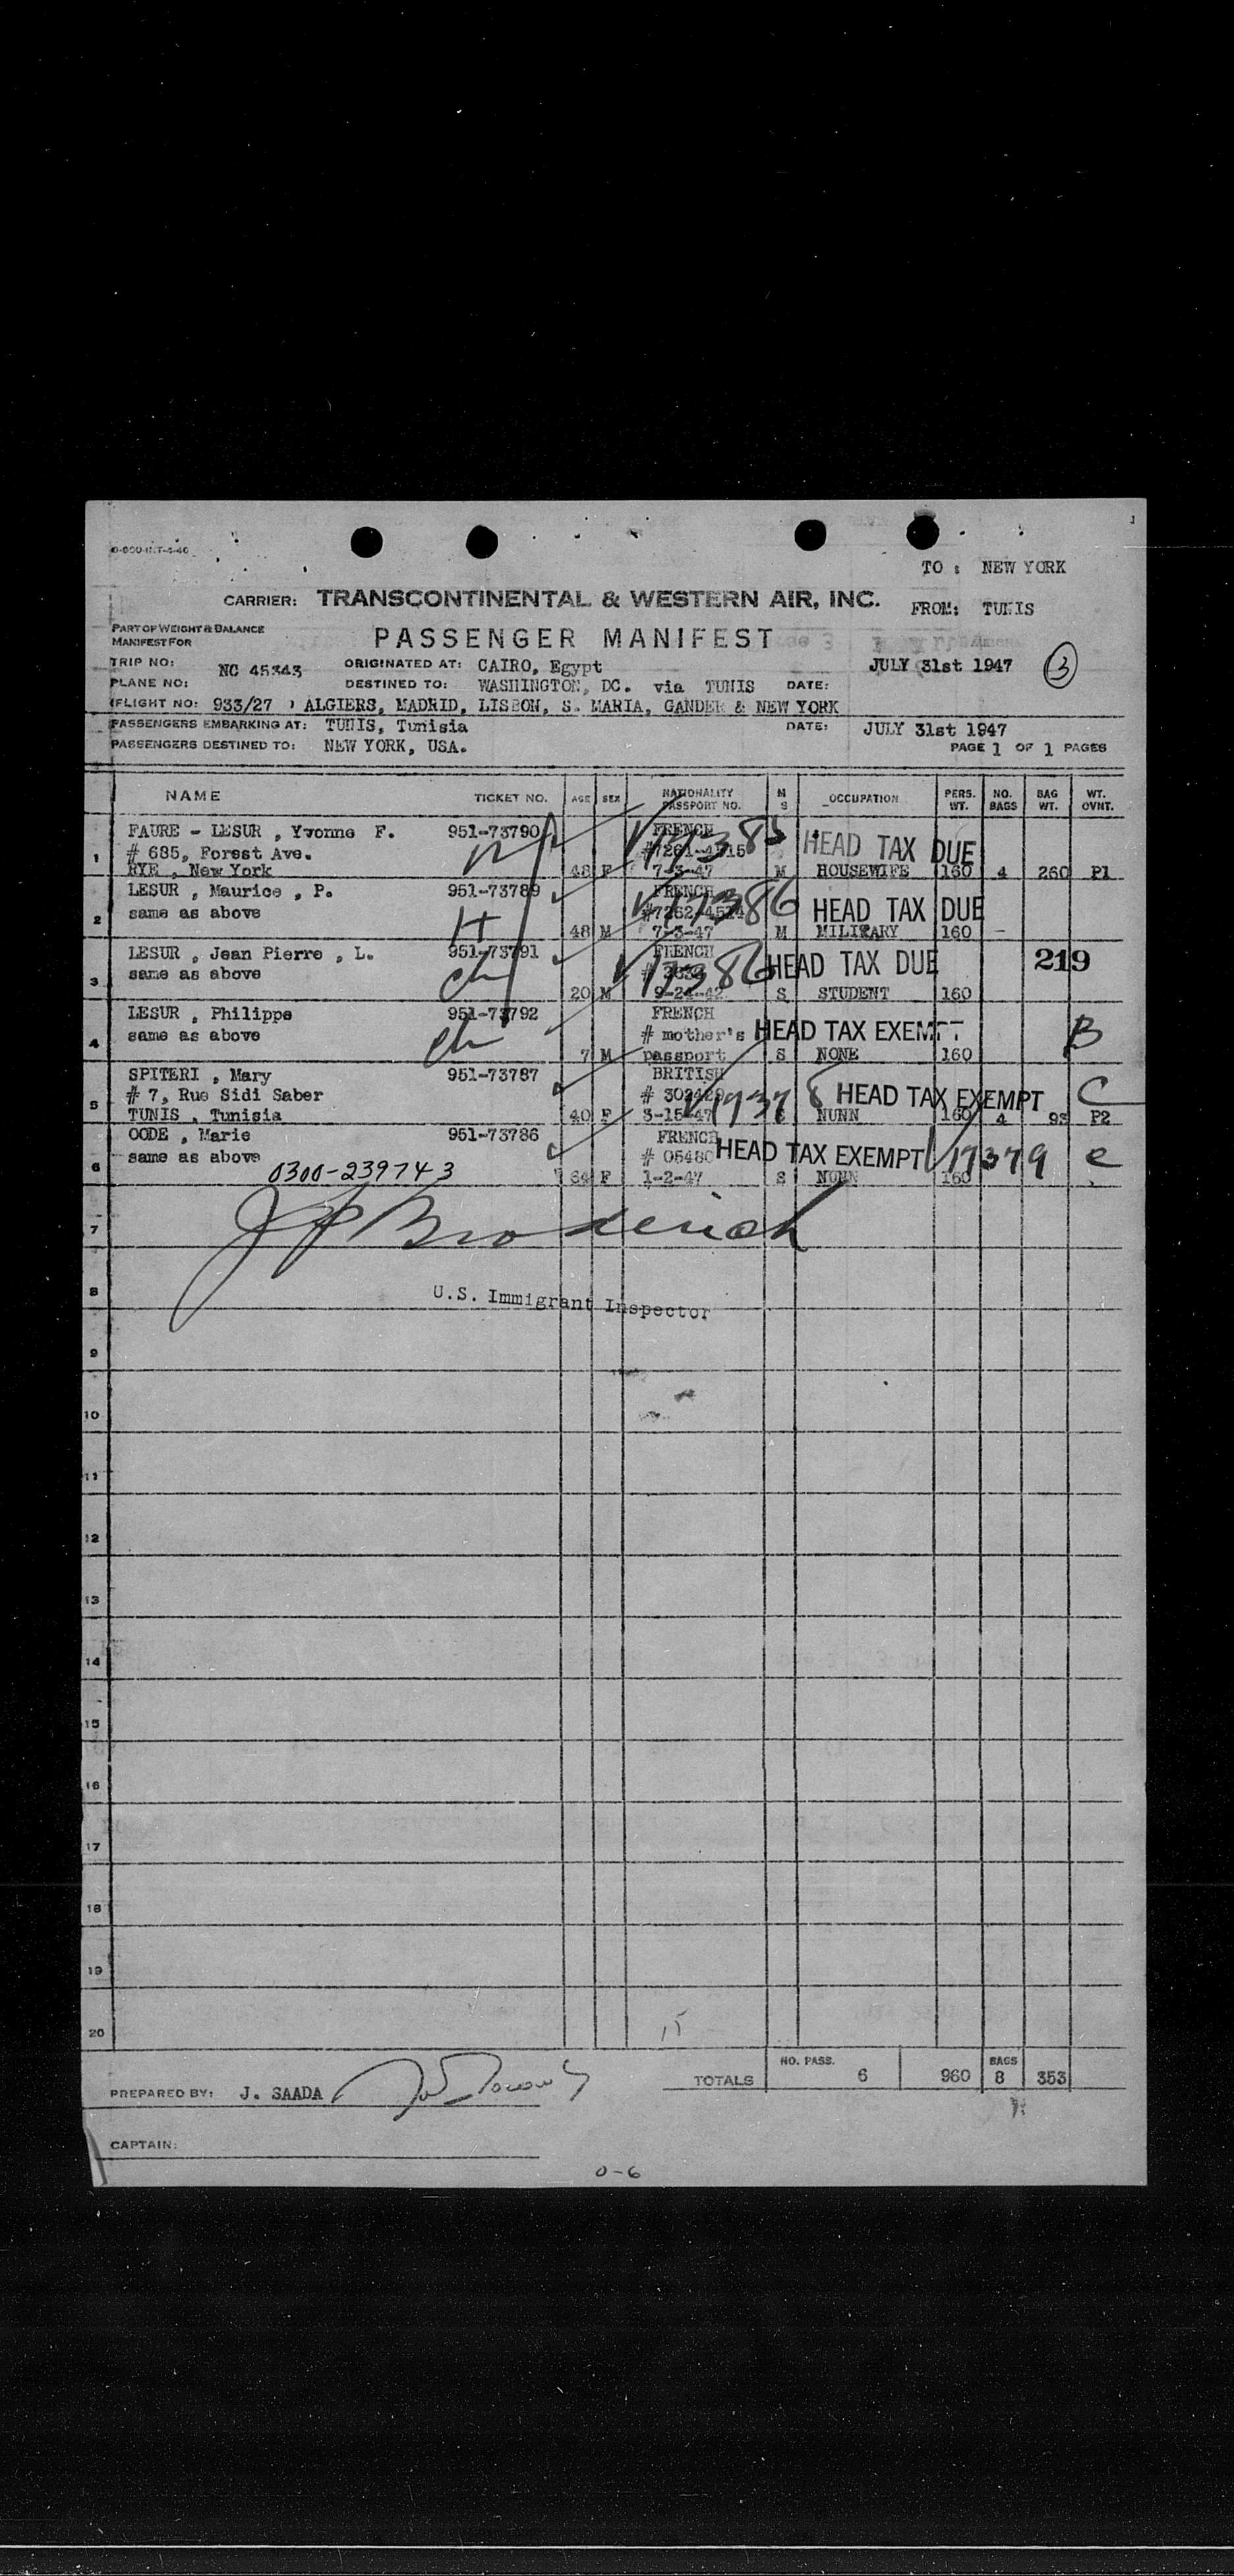 O-600-INT-4-46
TO : NEW YORK
CARRIER: TRANSCONTINENTAL & WESTERN AIR, INC. FROM: TUNIS
PART OF WEIGHT & BALANCE
MANIFEST FOR
PASSENGER MANIFEST
TRIP NO: NC 45343 ORIGINATED AT: CAIRO, Egypt JULY 31st 1947 3
PLANE NO: DESTINED TO: WASHINGTON, DC. via TUNIS DATE:
FLIGHT NO: 933/27 ALGIERS, MADRID, LISBON, S. MARIA, GANDER & NEW YORK
PASSENGERS EMBARKING AT: TUNIS, Tunisia DATE: JULY 31st 1947
PASSENGERS DESTINED TO: NEW YORK, USA. PAGE 1 OF 1 PAGES
NAME TICKET NO. AGE SEX NATIONALITY PASSPORT NO. M S OCCUPATION PERS. WT. NO. BAGS BAG WT. WT. OVNT.
FAURE - LESUR , Yvonne F. 951-73790 FRENCH V17385 HEAD TAX DUE
1 # 685, Forest Ave.
RYE , New York 48 F 7-3-47 M HOUSEWIFE 160 4 260 P1
LESUR , Maurice , P. 951-73789 FRENCH V17386
2 same as above H #7262/4514 HEAD TAX DUE
48 M 7-3-47 M MILITARY 160 -
LESUR , Jean Pierre , L. 951-73791 FRENCH V17386 HEAD TAX DUE 219
3 same as above ch
20 M 9-24-42 S STUDENT 160
LESUR , Philippe 951-73792 FRENCH
4 same as above ch # mother's HEAD TAX EXEMPT B
7 M passport S NONE 160
SPITERI , Mary 951-73787 BRITISH
5 # 7, Rue Sidi Saber V17378 HEAD TAX EXEMPT C
TUNIS , Tunisia 40 F 3-15-47 S NUNN 160 4 93 P2
OODE , Marie 951-73786 FRENCH
6 same as above # 05480 HEAD TAX EXEMPT V17379 C
0300-239743 F 1-2-47 S NUNN 160
7 J P Broderick
8 U.S. Immigrant Inspector
9
10
11
12
13
14
15
16
17
18
19
20 15
TOTALS NO. PASS. 6 960 BAGS 8 353
PREPARED BY: J. SAADA
CAPTAIN:
0-6